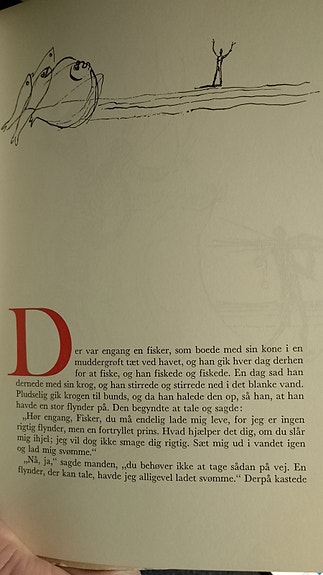 Der var engang en fisker, som boede med sin kone i en
muddergrøft tæt ved havet, og han gik hver dag derhen
for at fiske, og han fiskede og fiskede. En dag sad han
dernede med sin krog, og han stirrede og stirrede ned i det blanke vand.
Pludselig gik krogen til bunds, og da han halede den op, så han, at han
havde en stor flynder på. Den begyndte at tale og sagde:
„Hør engang, Fisker, du må endelig lade mig leve, for jeg er ingen
rigtig flynder, men en fortryllet prins. Hvad hjælper det dig, om du slår
mig ihjel; jeg vil dog ikke smage dig rigtig. Sæt mig ud i vandet igen
og lad mig svømme.“
„Nå, ja,“ sagde manden, „du behøver ikke at tage sådan på vej. En
flynder, der kan tale, havde jeg alligevel ladet svømme.“ Derpå kastede